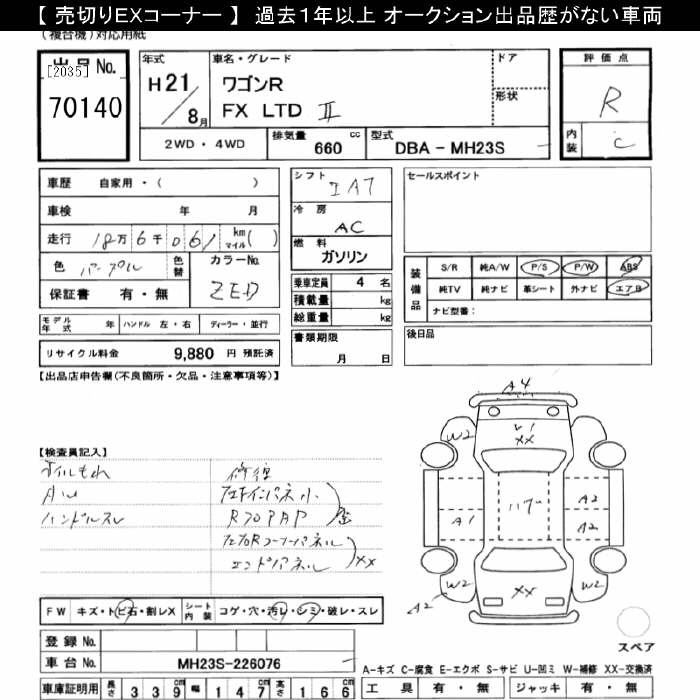 【 売切りEXコーナー 】 過去1年以上 オークション出品歴がない車両
(複合機)対応用紙
出品 No.
[2035]
70140
年式
H21/8月
車名・グレード
ワゴンR
FX LTD Ⅱ
ドア
形状
評価点
R
内装
C
2WD・4WD
排気量 660 cc
型式 DBA - MH23S
車歴 自家用・( )
車検 年 月
走行 18万6千061 km マイル( )
色 パープル
色替
カラーNo. ZED
保証書 有・無
シフト IAT
冷房 AC
燃料 ガソリン
乗車定員 4 名
積載量 kg
総重量 kg
書類期限
月 日
セールスポイント
装備品
S/R 純A/W P/S P/W ABS
純TV 純ナビ 革シート 外ナビ エアB
ナビ型番:
後日品
モデル年式 年 ハンドル 左・右 ディーラー・並行
リサイクル料金 9,880 円 預託済
【出品店申告欄(不良箇所・欠品・注意事項等)】
【検査員記入】
オイルもれ
ハンドルスレ
修復
エンドパネル
XX
A4
W2
V1
XX
W2
A1
A2
A2
W2
XX
W2
A2
スペア
FW キズ・トビ石・割レX
シート内装 コゲ・穴・汚レ・シミ・破レ・スレ
登録 No.
車台 No. MH23S-226076
A-キズ C-腐食 E-エクボ S-サビ U-凹ミ W-補修 XX-交換済
車庫証明用 長さ 339 幅 147 高さ 166
工具 有・無 ジャッキ 有・無